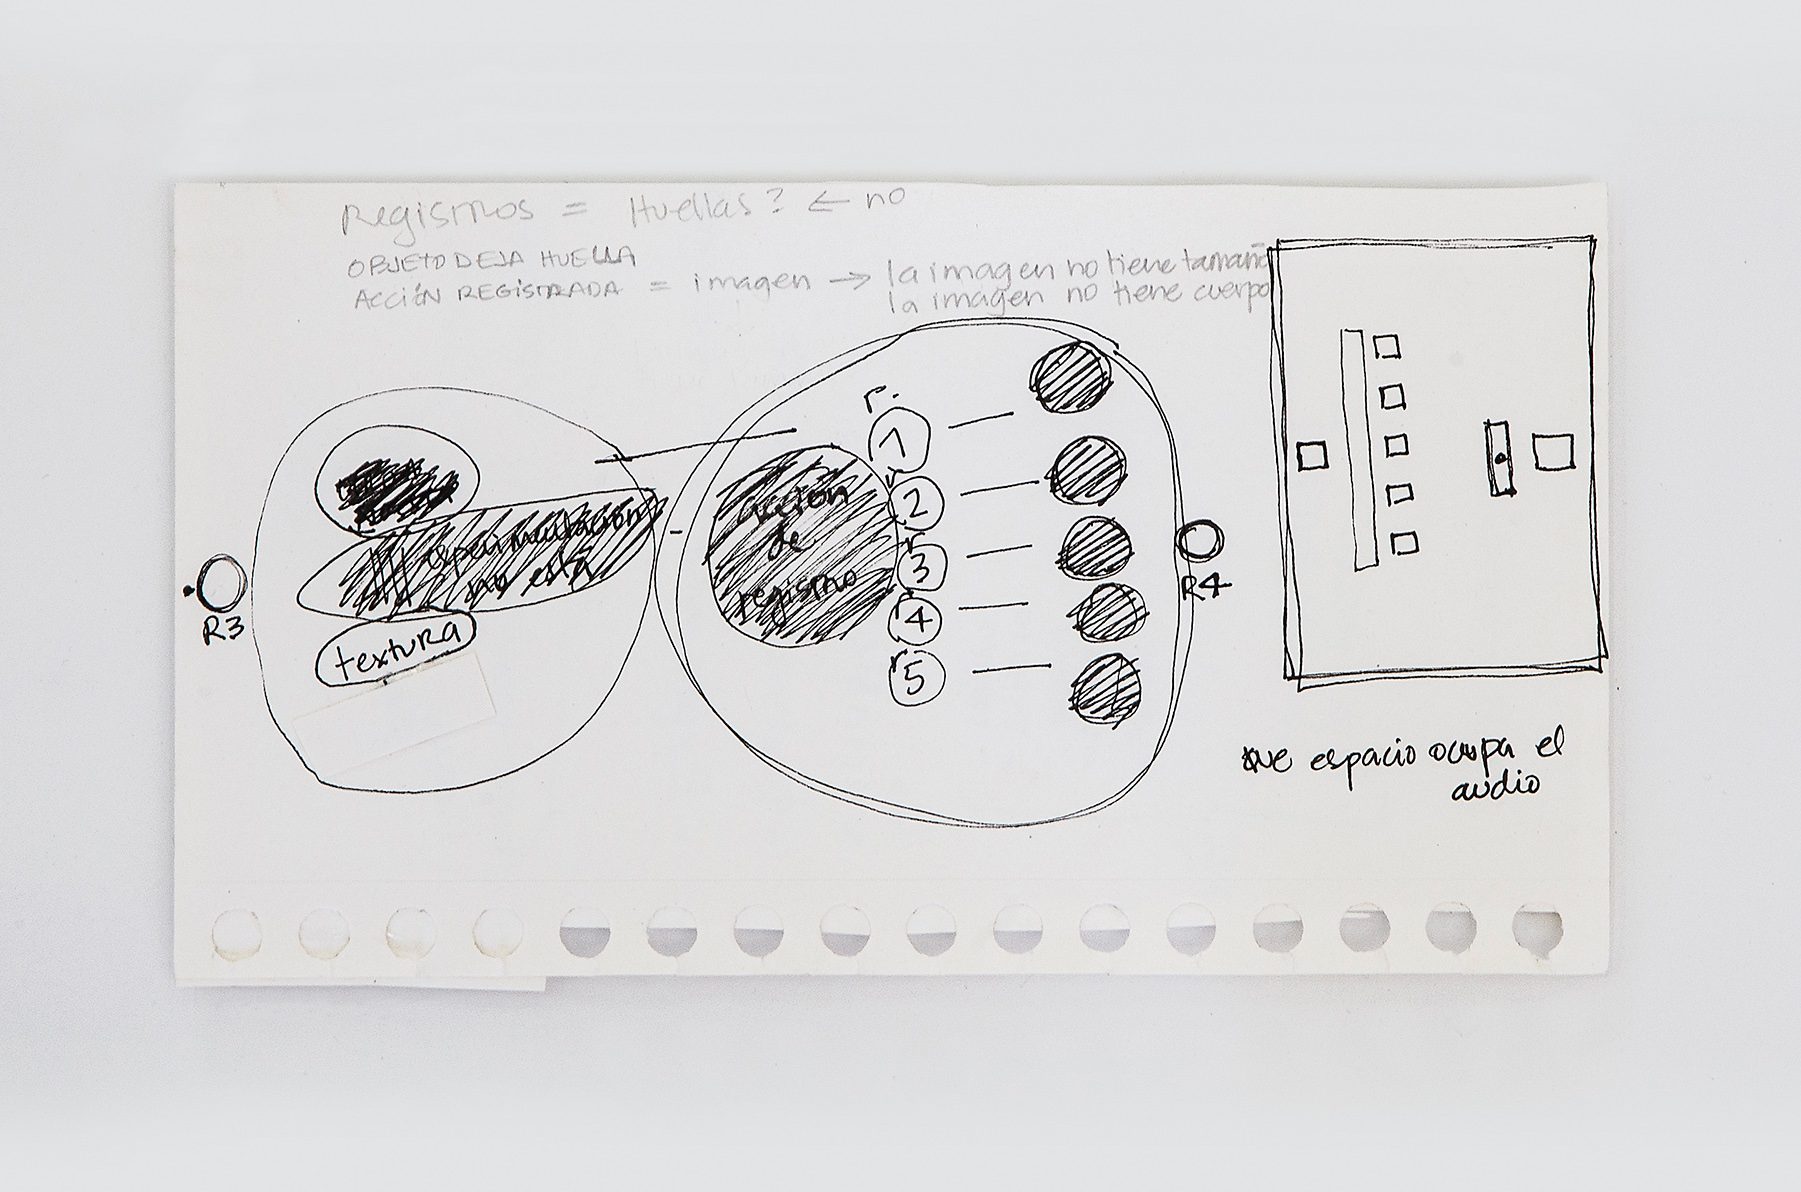 Registros = Huellas? ← no
OBJETO DEJA HUELLA
ACCIÓN REGISTRADA = imagen → la imagen no tiene tamaño
la imagen no tiene cuerpo
experimentación
no está
textura
R3
acción
de
registro
r.
1
r
2
r
3
r
4
r
5
R4
que espacio ocupa el
audio